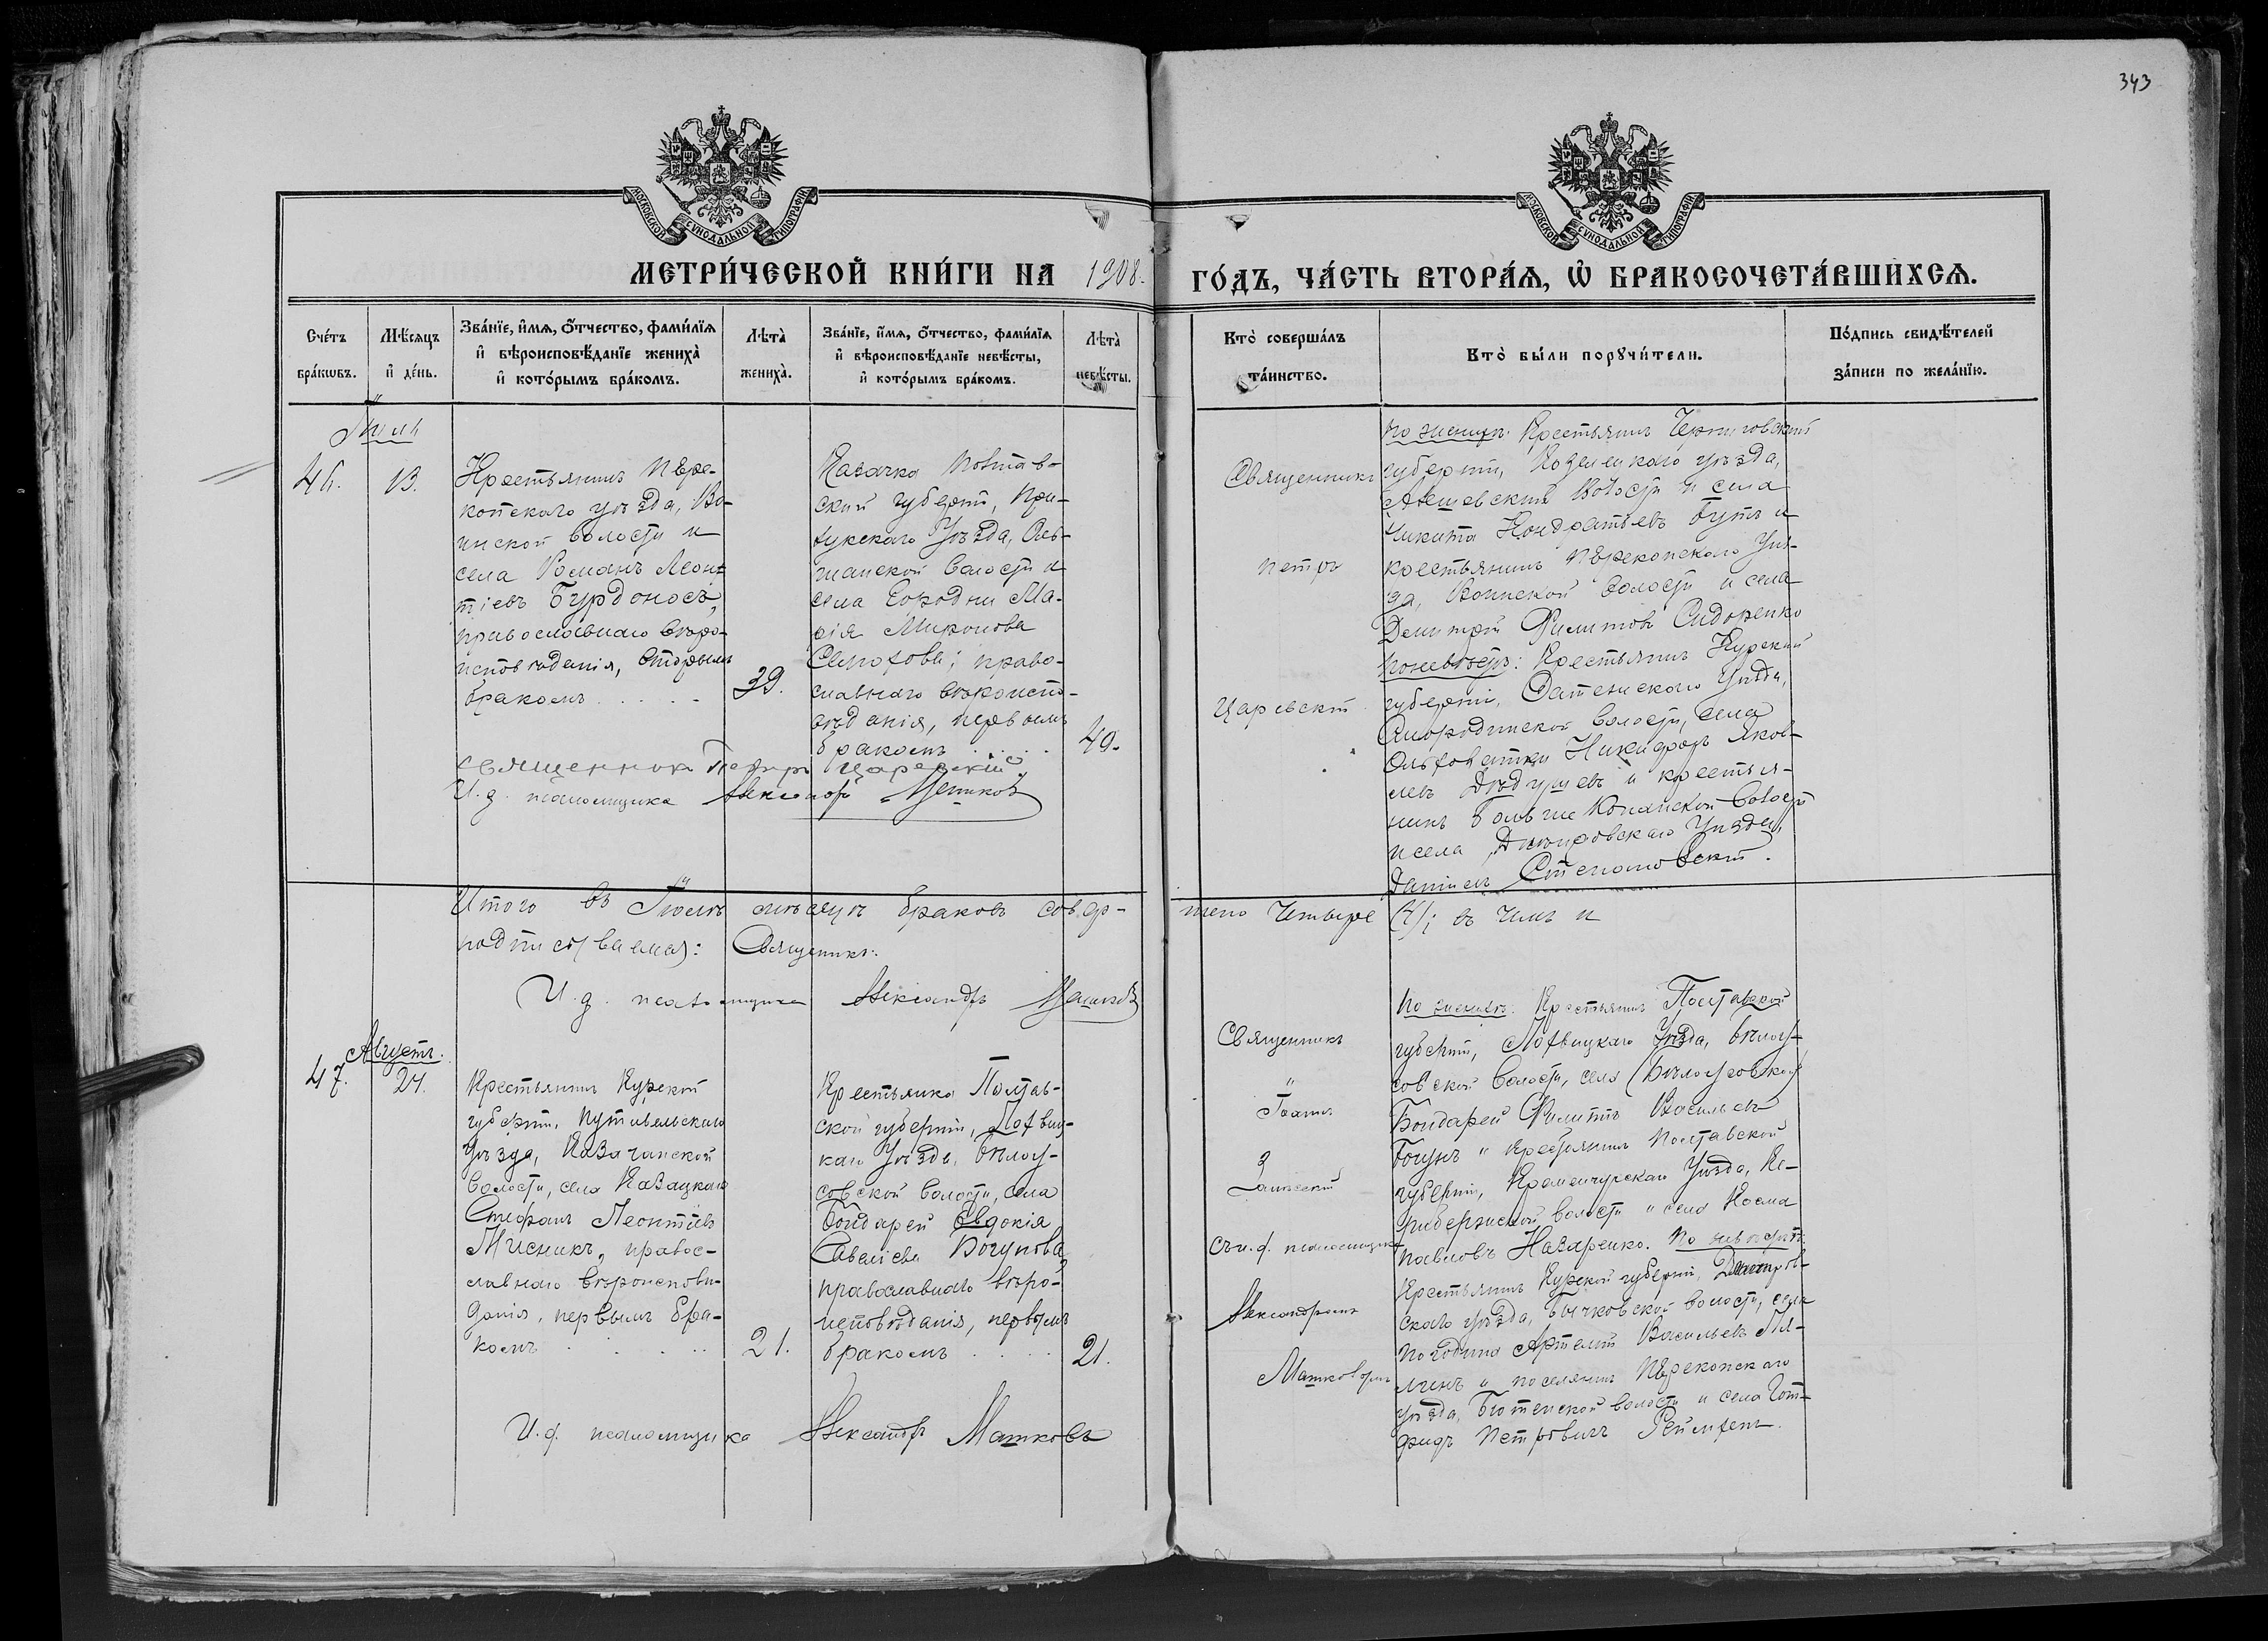 343
МОСКОВСКОЙ СУНОДАЛЬНОЙ ТИПОГРАФІИ
МОСКОВСКОЙ СУНОДАЛЬНОЙ ТИПОГРАФІИ
МЕТРИ́ЧЕСКОЙ КНИ́ГИ НА 1908. ГО́ДЪ, ЧА́СТЬ ВТОРА́Ѧ, Ѽ БРАКОСОЧЕТА́ВШИХСѦ.
Сче́тъ
бра́кѡвъ.
Мѣ́сѧцъ
и҆ де́нь.
Зва́нїе, и҆́мѧ, ѻ҆́тчество, фами́лїѧ
и҆ вѣроисповѣ́данїе жениха̀
и҆ кото́рымъ бра́комъ.
Лѣта̀
жениха̀.
Зва́нїе, и҆́мѧ, ѻ҆́тчество, фами́лїѧ
и҆ вѣроисповѣ́данїе невѣ́сты,
и҆ кото́рымъ бра́комъ.
Лѣта̀
невѣ́сты.
Кто̀ соверша́лъ
та́инство.
Кто̀ бы́ли порꙋчи́тели.
По́дпись свидѣ́телей
за́писи по жела́нїю.
46.
13.
Крестьянинъ Пере-
копскаго уѣзда, Во-
инской волости и
села Романъ Леон-
тіевъ Бурдоносъ,
православнаго вѣро-
исповѣданія, вторымъ
бракомъ
39.
Казачка Полтав-
ской губерніи, При-
лукскаго Уѣзда, Оль-
шанской Волости и
села Городни Ма-
рія Миронова
право-
славнаго вѣроиспо-
вѣданія, первымъ
бракомъ
40.
Священникъ
Петръ
Царевскій
По женихѣ: Крестьянинъ Черниговской
губерніи, Козелецкаго уѣзда,
Волости и села
Никита Кондратьевъ Бутъ и
крестьянинъ Перекопскаго Уѣз-
да, Воинской Волости и села
Димитрій Филиповъ Сидоренко
По невѣстѣ: Крестьянинъ Курской
губерніи, Уѣзда,
Смородинской Волости, села
Ольховатки Никифоръ Яков-
левъ Дѣдушевъ и крестья-
нинъ Больше Копанской Волости
и села, Днѣпровскаго Уѣзда,
Даніилъ Степановскій.
Священникъ Петръ Царевскій
И. д. псаломщика Александръ Машковъ
Итого въ Іюлѣ мѣсяцѣ браковъ совер-
шено Четыре (4); въ чемъ и
подписываемся: Священникъ:
И. д. псаломщика Александръ Машковъ
Августъ.
47.
24.
Крестьянинъ Курской
губерніи, Путивльскаго
Уѣзда, Казачанской
Волости, села Казацкаго
Стефанъ Леонтіевъ
Мисникъ, правос-
славнаго вѣроисповѣ-
данія, первымъ бра-
комъ
21.
Крестьянка Полтав-
ской губерніи, Лохвиц-
каго Уѣзда, Бѣлоу-
совской Волости, села
Бондарей Евдокія
Савеліева Богунова,
православнаго вѣро-
исповѣданія, первымъ
бракомъ
21.
Священникъ
Іоаннъ
съ и. д. псаломщика
Александромъ
Машковымъ
По женихѣ: Крестьянинъ Полтавской
губерніи, Лохвицкаго Уѣзда, Бѣлоу-
совской Волости, села (Бѣлоусовской)
Бондарей Филиппъ Васильевъ
Богунъ и Крестьянинъ Полтавской
губерніи, Кременчугскаго Уѣзда, Ке-
рибердской волости и села Косма
Павловъ Назаренко. По невѣстѣ:
Крестьянинъ Курской губерніи, Дмитров-
скаго уѣзда, Бычковской волости, села
Погодина Василевъ
и поселянинъ Перекопскаго
уѣзда, Бютенской волости и села Гот-
фридъ Петровичъ
И. д. псаломщика Александръ Машковъ